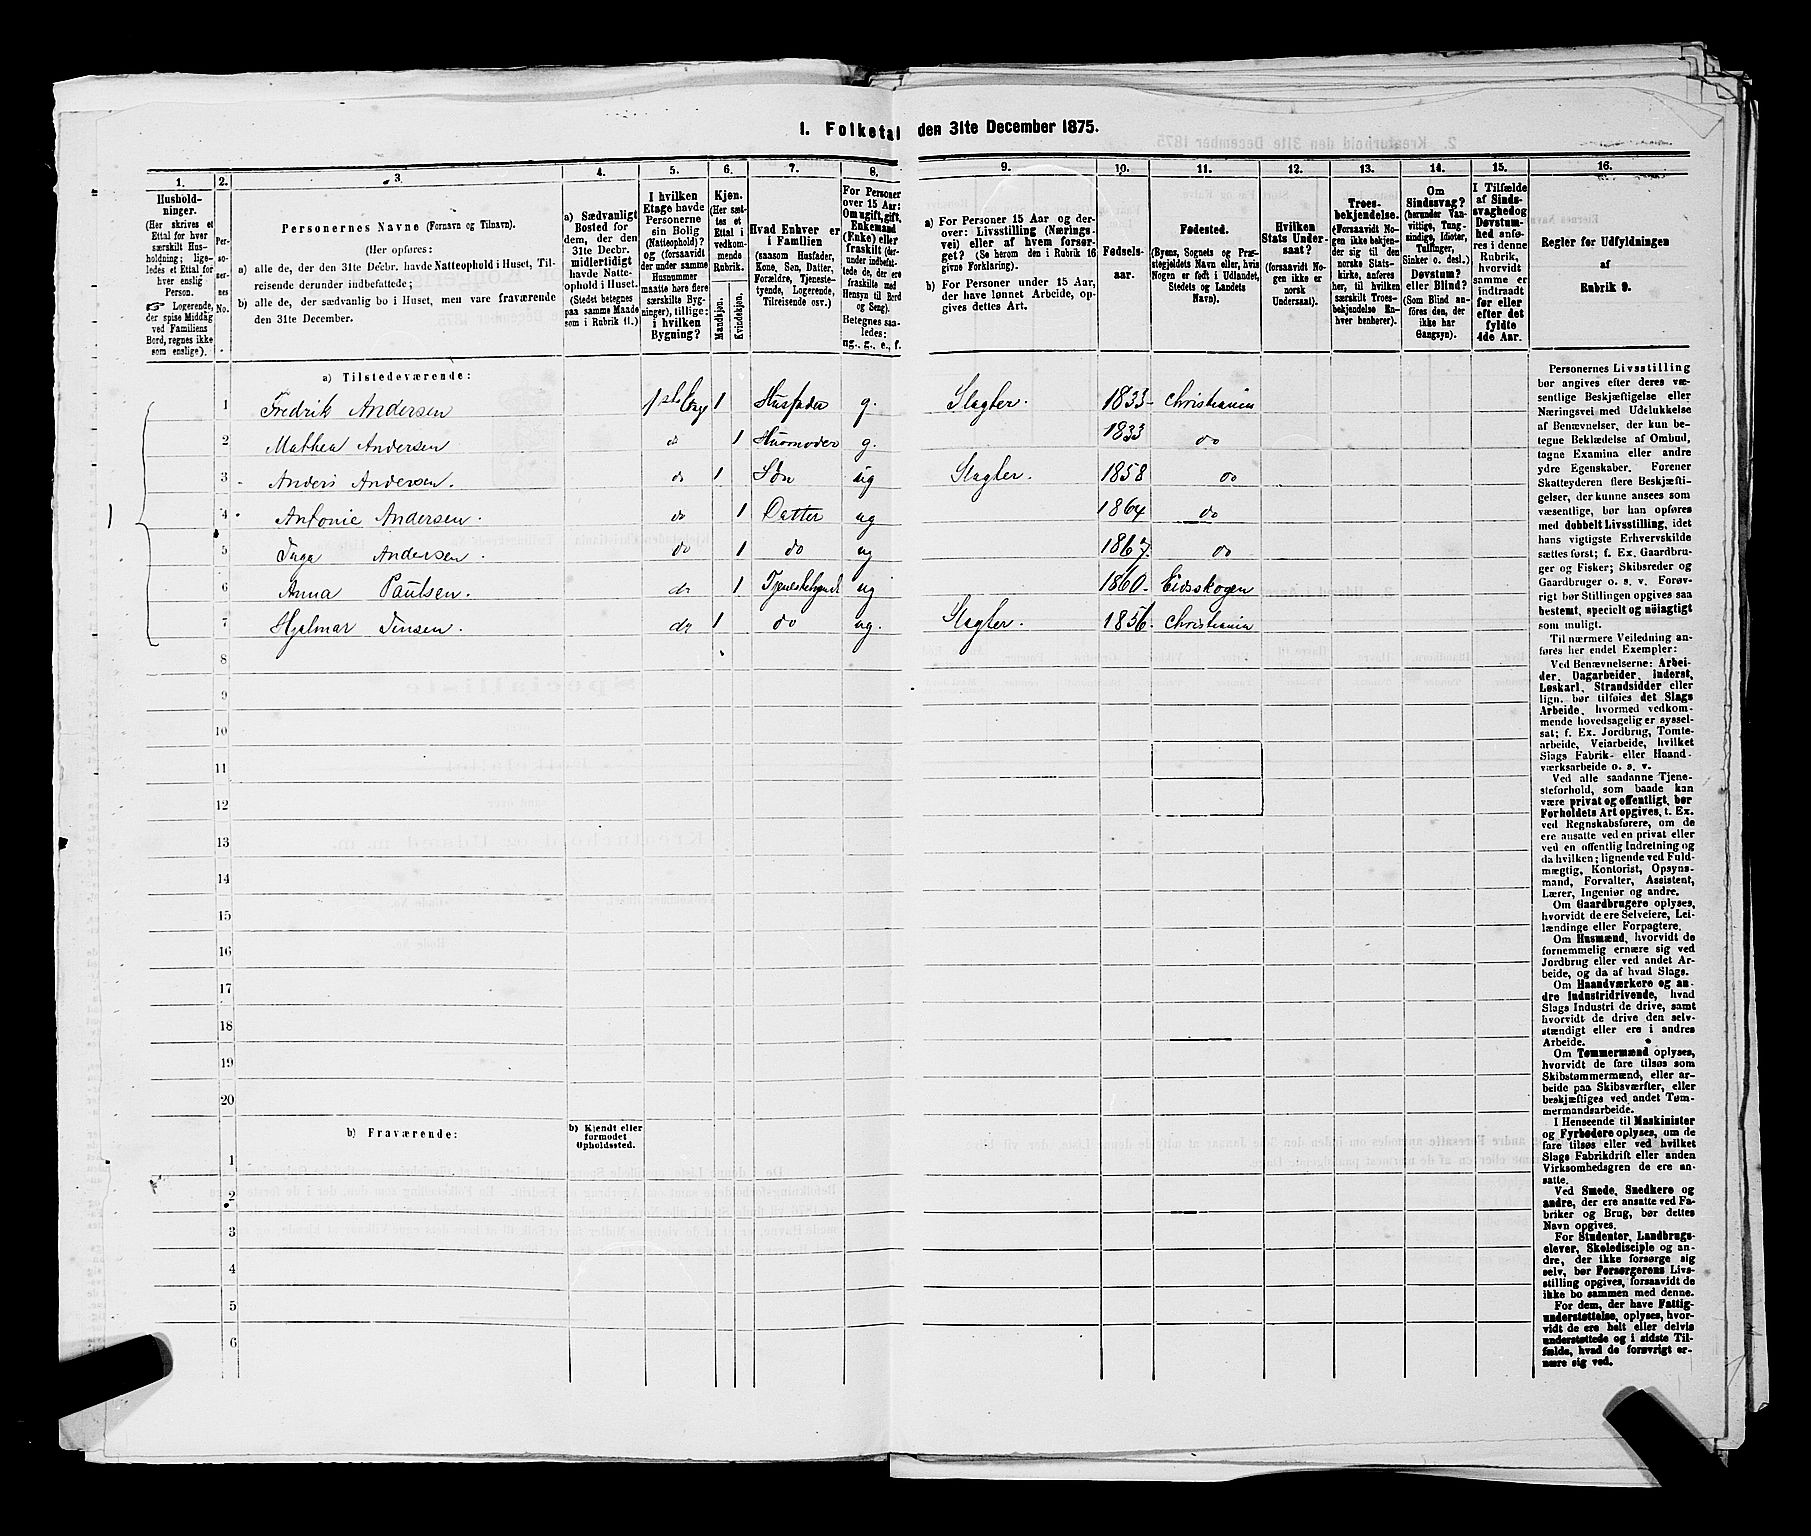 1. Folketal den 31te December 1875.
1. 2. 3. 4. 5. 6. 7. 8. 9. 10. 11. 12. 13. 14. 15. 16.
Husholdninger.
(Her skrives et
Ettal for hver
særskilt Husholdning;
ligeledes et Ettal for
hver enslig
Person.
☞ Logerende,
der spise Middag
ved Familiens
Bord, regnes ikke
som enslige).
Personernes No.
Personernes Navne (Fornavn og Tilnavn).
(Her opføres:
a) alle de, der den 31te Decbr. havde Natteophold i Huset, Tilreisende derunder indbefattede;
b) alle de, der sædvanlig bo i Huset, men vare fraværende
den 31te December.
a) Sædvanligt
Bosted for
dem, der den
31te Decbr.
midlertidigt
havde Natteophold i Huset.
(Stedet betegnes
paa samme Maade
som i Rubrik 11.)
I hvilken
Etage havde
Personerne
sin Bolig
(Natteophold)?
og (forsaavidt
der under samme
Husnummer
maatte høre flere
særskilte Bygninger), tillige:
i hvilken
Bygning?
Kjøn.
(Her sættes et
Ettal i
vedkommende
Rubrik.
Mandkjøn.
Kvindekjøn.
Hvad Enhver er
i Familien
(saasom Husfader,
Kone, Søn, Datter,
Forældre, Tjenestetyende, Logerende,
Tilreisende osv.)
For Personer
over 15 Aar:
Om ugift, gift,
Enkemand
(Enke) eller
fraskilt (derunder indbefattede de, der ere
fraskilte med
Hensyn til Bord
og Seng).
Betegnes saaledes:
ug., g., e., f.
a) For Personer 15 Aar og derover: Livsstilling (Næringsvei) eller af hvem forsørget? (Se herom den i Rubrik 16
givne Forklaring).
b) For Personer under 15 Aar,
der have lønnet Arbeide, opgives dettes Art.
Fødselsaar.
Fødested.
(Byens, Sognets og Præstegjeldets Navn eller, hvis
Nogen er født i Udlandet,
Stedets og Landets
Navn).
Hvilken
Stats Undersaat?
(forsaavidt Nogen ikke er
norsk
Undersaat).
Troesbekjendelse.
(Forsaavidt Nogen ikke bekjender sig til den
norske Statskirke, anføres
her, til hvilken
særskilt Troesbekjendelse Enhver henhører).
Om
Sindssvag?
(herunder Vanvittige, Tungsindige, Idioter,
Tullinger,
Sinker o. desl.)
Døvstum?
eller Blind?
(Som Blind anføres den, der
ikke har
Gangsyn).
I Tilfælde
af Sindssvaghed og
Døvstumhed anføres i denne
Rubrik,
hvorvidt
samme er
indtraadt
før eller
efter det
fyldte
4de Aar.
Regler for Udfyldningen
af
Rubrik 9.
a) Tilstedeværende:
1 1 Fredrik Andersen 1ste Etage 1 Husfader g. Slagter. 1833 Christiania
2 Mathea Andersen do 1 Husmoder g. 1833 do
3 Anders Andersen. do 1 Søn ug Slagter. 1858 do
4 Antonie Andersen. do 1 Datter ug 1864 do
5 Inga Andersen. do 1 do ug 1867. do
6 Anna Paulsen. do 1 Tjenestetyende ug 1860. Eidsskogen
7 Hjalmar Jensen. do 1 do ug. Slagter. 1856. Christiania
8
9
10
11
12
13
14
15
16
17
18
19
20
b) Fraværende:
b) Kjendt eller
formodet
Opholdssted.
1
2
3
4
5
6
Personernes Livsstilling
bør angives efter deres væsentlige Beskjæftigelse eller
Næringsvei med Udelukkelse
af Benævnelser, der kun betegne Beklædelse af Ombud,
tagne Examina eller andre
ydre Egenskaber. Forener
Skatteyderen flere Beskjæftigelser, der kunne ansees som
væsentlige, bør han opføres
med dobbelt Livsstilling, idet
hans vigtigste Erhvervskilde
sættes først; f. Ex. Gaardbruger og Fisker; Skibsreder og
Gaardbruger o. s. v. Forøvrigt bør Stillingen opgives saa
bestemt, specielt og nöiagtigt
som muligt.
Til nærmere Veiledning anføres her endel Exempler:
Ved Benævnelserne: Arbeider, Dagarbeider, Inderst,
Løskarl, Strandsidder eller
lign. bør tilføies det Slags
Arbeide, hvormed vedkommende hovedsagelig er sysselsat; f. Ex. Jordbrug, Tomtearbeide, Veiarbeide, hvilket
Slags Fabrik- eller Haandværksarbeide o. s. v.
Ved alle saadanne Tjenesteforhold, som baade kan
være privat og offentligt, bør
Forholdets Art opgives, t. Ex.
ved Regnskabsførere, om de
ere ansatte ved en privat eller
ved en offentlig Indretning og
da hvilken; lignende ved Fuldmægtig, Kontorist, Opsynsmand, Forvalter, Assistent,
Lærer, Ingeniør og andre.
Om Gaardbrugere oplyses,
hvorvidt de ere Selveiere, Leilændinge eller Forpagtere.
Om Husmænd, hvorvidt de
fornemmelig ernære sig ved
Jordbrug eller ved andet Arbeide, og da af hvad Slags.
Om Haandværkere og andre Industridrivende, hvad
Slags Industri de drive, samt
hvorvidt de drive den selvstændigt eller ere i andres
Arbeide.
Om Tømmermænd oplyses,
hvorvidt de fare tilsøs som
Skibstømmermænd, eller arbeide paa Skibsværfter, eller
beskjæftiges ved andet Tømmermandsarbeide.
I Henseende til Maskinister
og Fyrbødere oplyses, om de
fare tilsøs eller ved hvilket
Slags Fabrikdrift eller anden
Virksomhedsgren de ere ansatte.
Ved Smede, Snedkere og
andre, der ere ansatte ved Fabriker og Brug, bør dettes
Navn opgives.
For Studenter, Landbrugselever, Skoledisciple og andre, der ikke forsørge sig
selv, bør Forsørgerens Livsstilling opgives, forsaavidt de
ikke bo sammen med denne.
For dem, der have Fattigunderstøttelse, oplyses, hvorvidt de ere helt eller delvis
understøttede og i sidste Tilfælde, hvad de forøvrigt ernære sig ved.